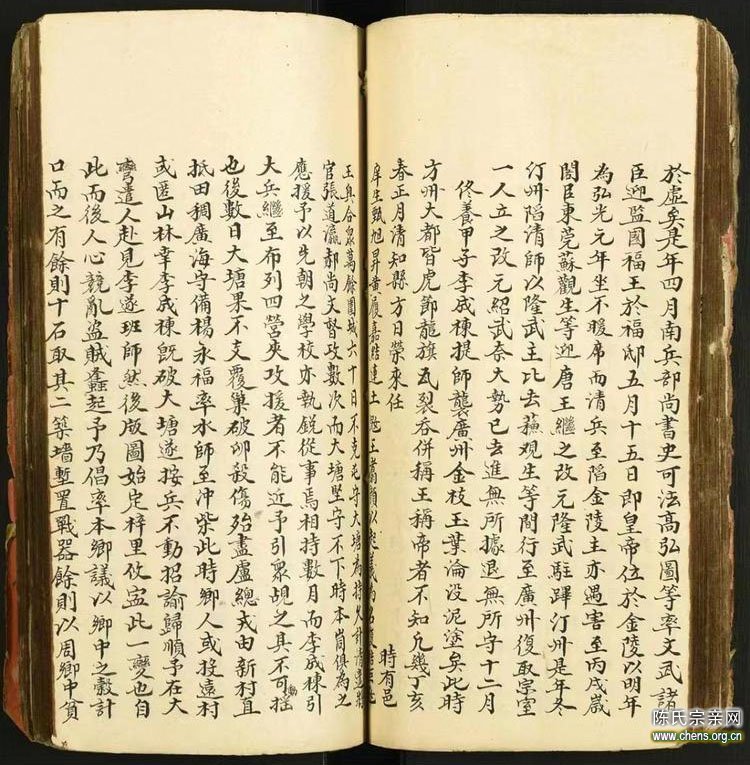 於虛矣是年四月南兵部尚書史可法高弘圖等率文武諸
臣迎監國福王於福邸五月十五日即皇帝位於金陵以明年
為弘光元年坐不暖席而清兵至陷金陵主亦遇害至丙戌歲
閣臣東莞蘇觀生等迎唐王繼之改元隆武駐蹕汀州是年冬
汀州陷清師以隆武王北去蘓观生等間行至廣州復取宗室
一人立之改元紹武奈大勢已去進無所據退無所守十二月
佟養甲子李成棟提師襲廣州金枝玉葉淪没泥塗矣此時
方州大都皆虎節龍旗瓦裂吞併稱王稱帝者不知凡幾丁亥
春正月清知縣方日榮來任
時有邑
庠生甄旭昇黄履嘉結連土
王與合衆萬餘圍城六十日不克屯守大塘為持久計清遣
官張道瀛郝尚文督攻數次而大塘坚守不下時本崗俱為之
應援予以先朝之學校亦執銳從事焉相持數月而李成棟引
大兵繼至布列四營夾攻援者不能近予引衆覘之具不可摇動
也後數日大塘果不支覆巢破卵殺傷殆盡盧總戎由新村直
抵田稠廣海守備楊永福率水師至冲柴此時鄉人或投遠村
或匿山林幸李成棟既破大塘遂按兵不動招諭歸順予在大
灣遣人赴見李遂班師然後版圖始定梓里攸寍此一變也自
此而後人心競亂盗賊蠭起予乃倡率本鄉議以鄉中之穀計
口而之有餘則十石取其二築墙塹置戰器餘則以周鄉中貧
陈氏宗亲网
www.chens.org.cn